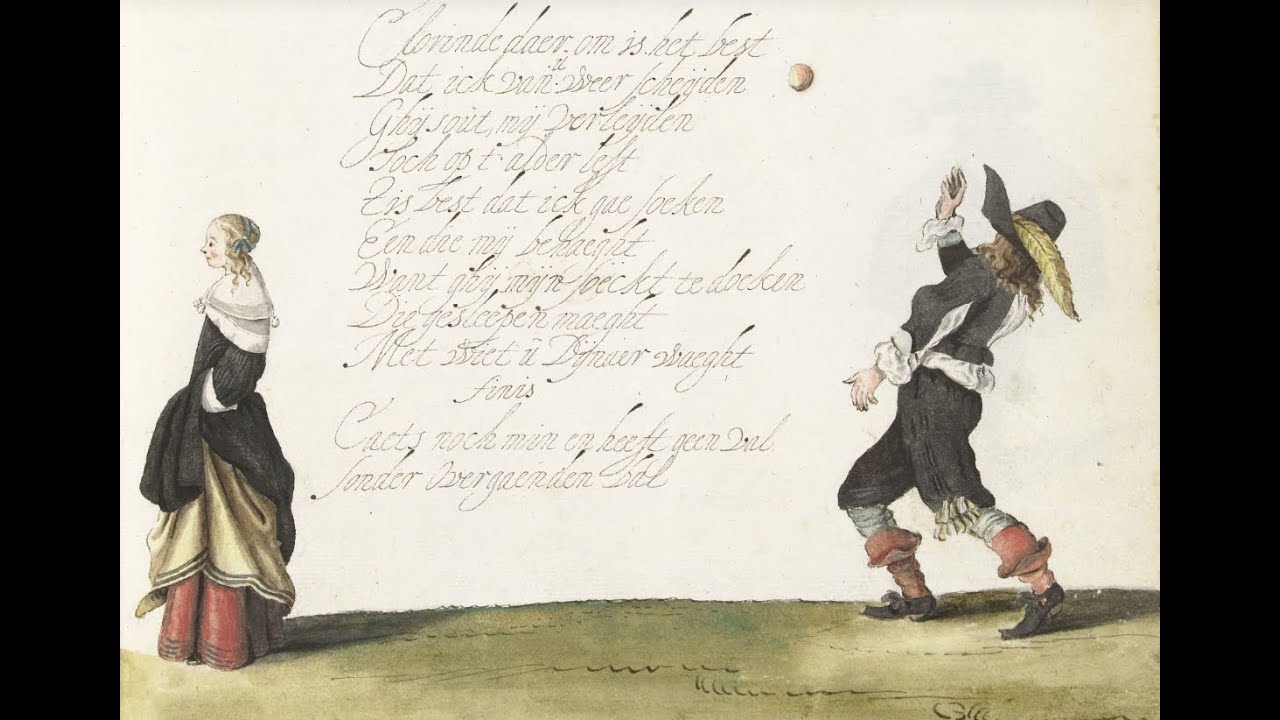 Clorinde daer. om is. het best
Dat ick van u weer scheijden
Ghij soŭt, mij verleijden
Noch op t alder lest
Tis best dat ick gae soeken
Een die mij behaeght
Want ghij mijn soeckt te doeken
Du geslepen maeght
Met wiet ŭ waeght
finis
Caets noch min en heeft geen val
sonder overgaenden bal